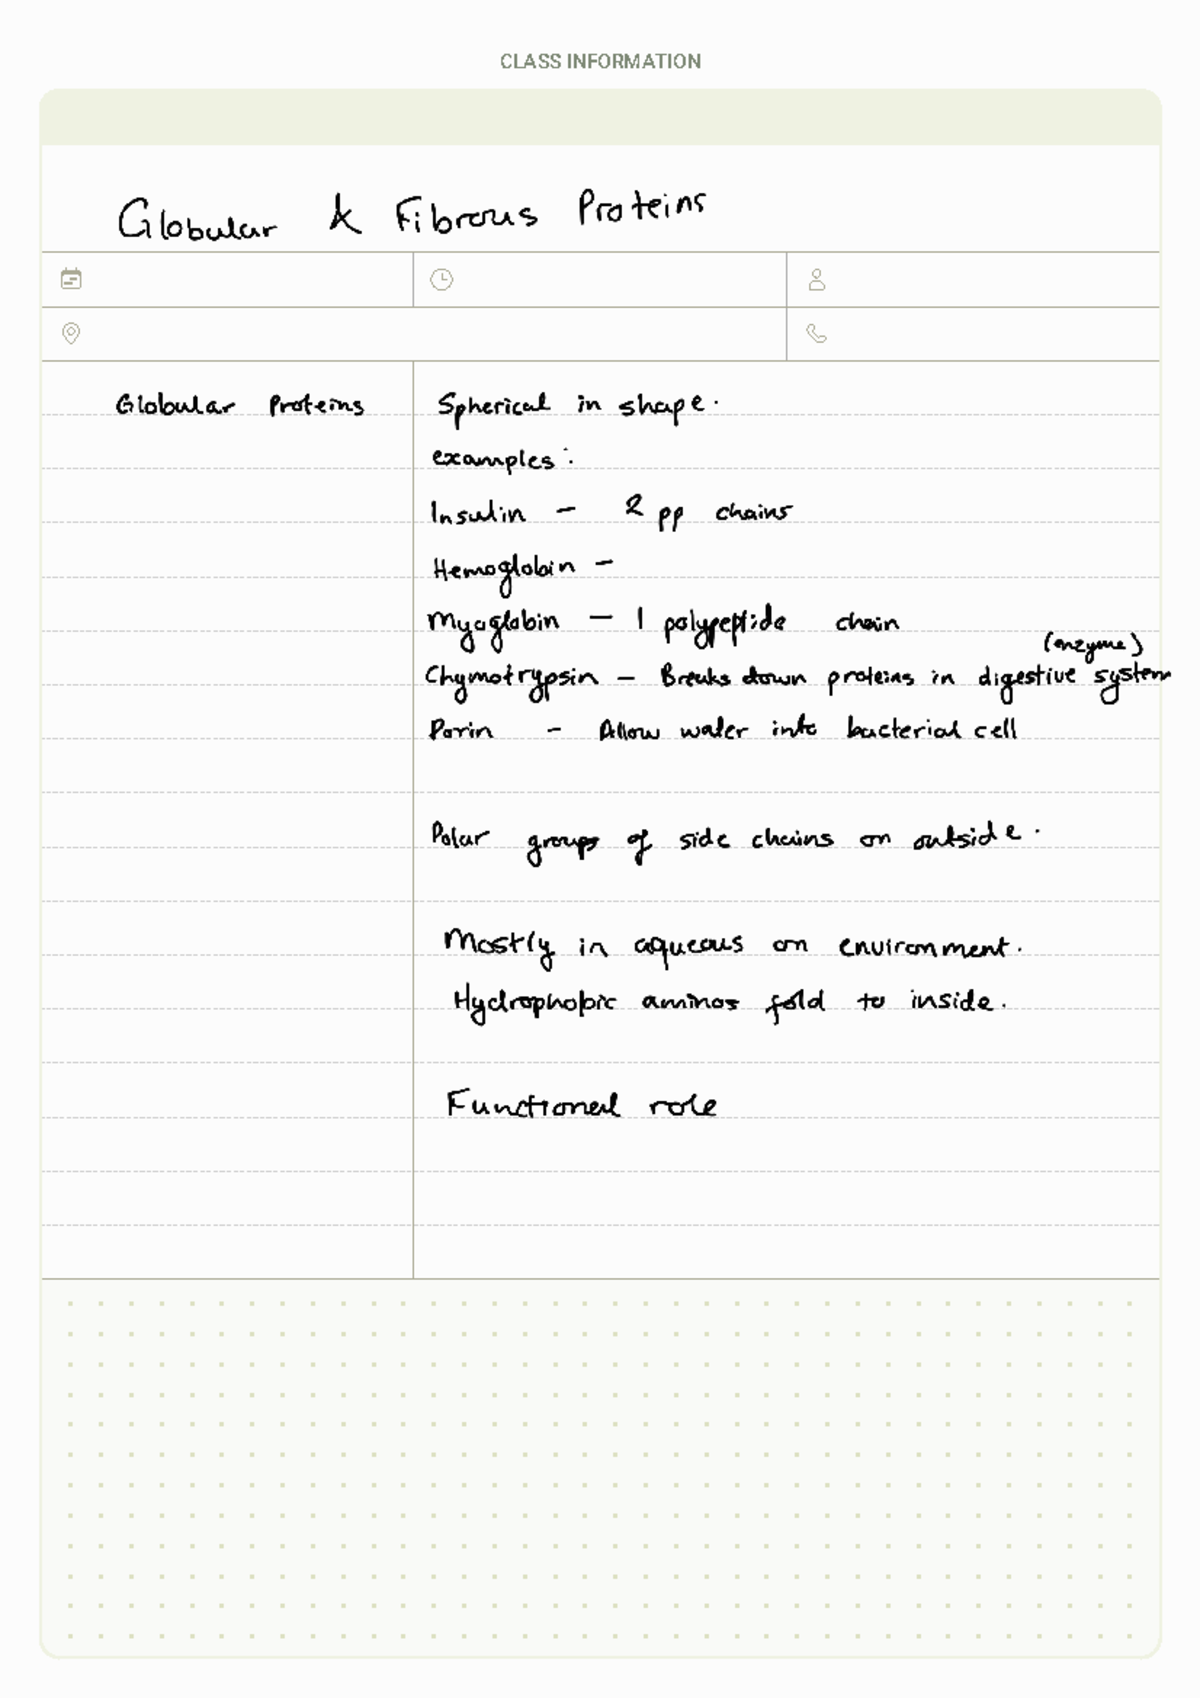 CLASS INFORMATION
Globular & Fibrous Proteins
Globular Proteins
Spherical in shape.
examples:
Insulin - 2 pp chains
Hemoglobin -
Myoglobin - 1 polypeptide chain
(enzyme)
Chymotrypsin - Breaks down proteins in digestive system
Porin - Allow water into bacterial cell
Polar groups of side chains on outside.
Mostly in aqueous on environment.
Hydrophobic aminos fold to inside.
Functional role